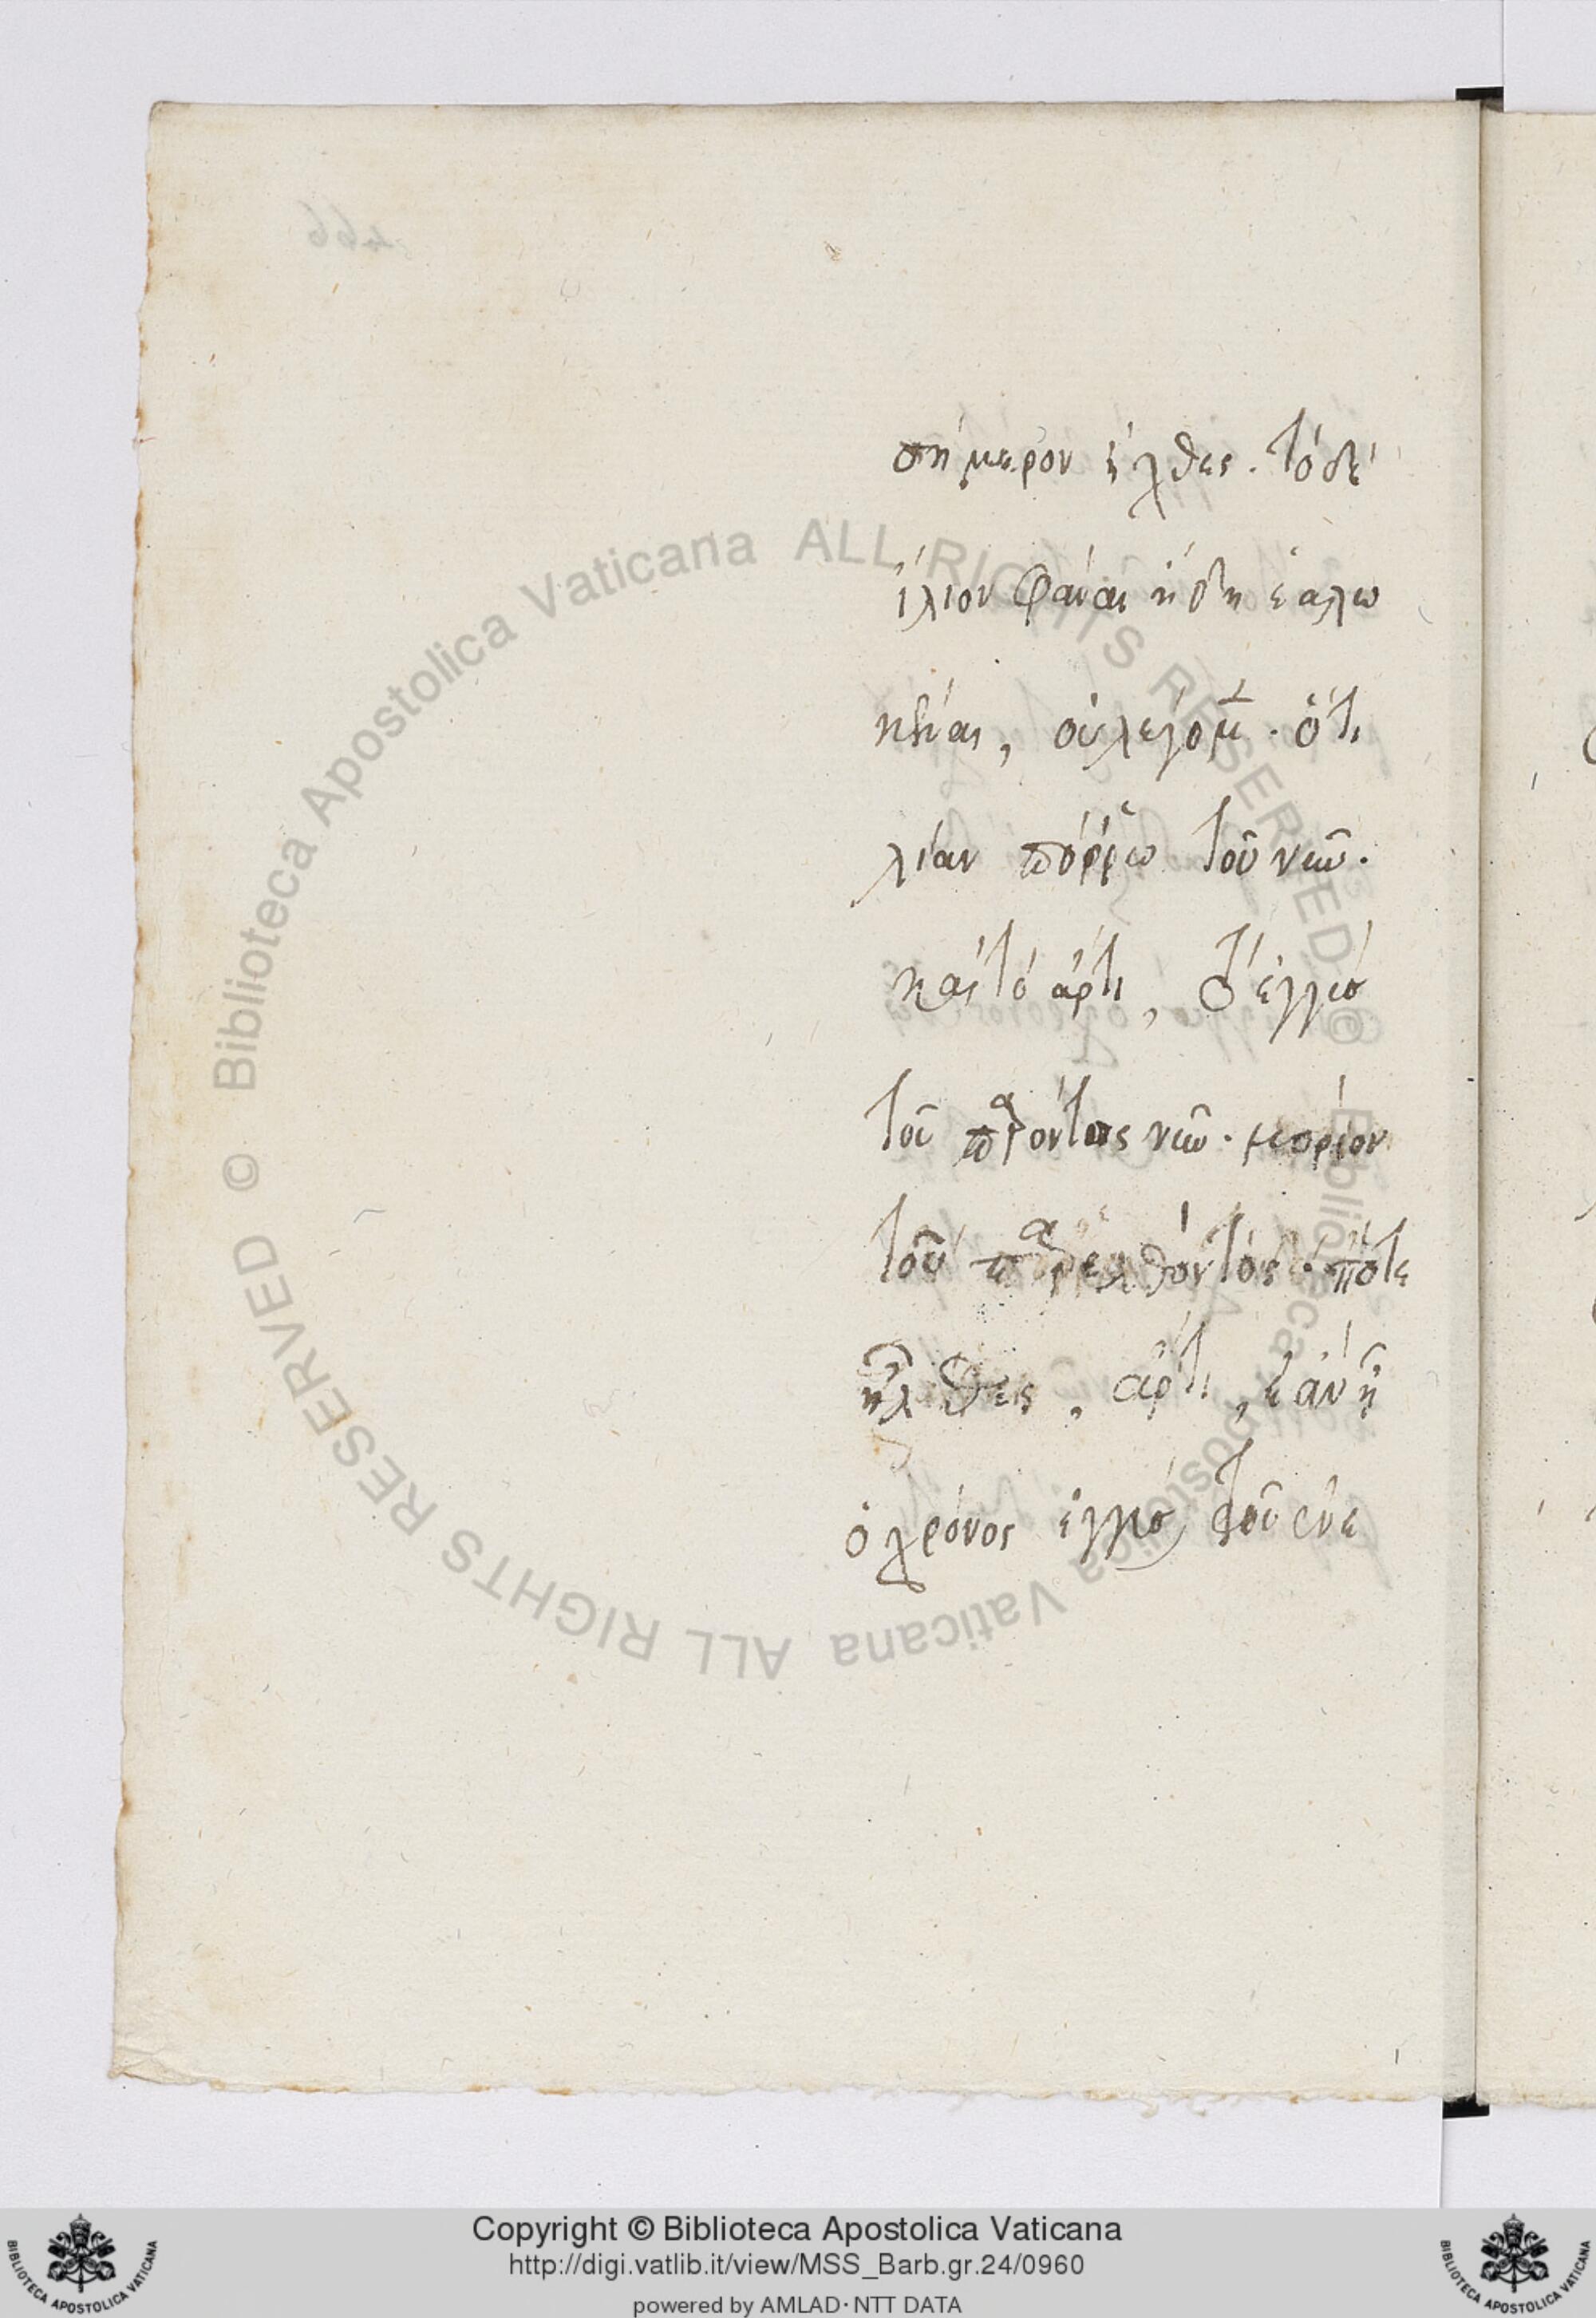 σήμερον ἦλθες. τὸ δὲ
ἴλιον φάναι ἤδη ἑαλω
κέναι, οὐ λέγομ̅. ὅτι
λίαν πόῤῥω τοῦ νῦν.
καὶ τὸ ἄρτι, τὸ ἐγγὺς
τοῦ παρόντος νῦν. μόριον
τοῦ παρελθόντος. πότε
ἦλθες, ἄρτι, ἐὰν ἦ
ὁ χρόνος ἐγγὺς τοῦ ἐνε
466
© Biblioteca Apostolica Vaticana ALL RIGHTS RESERVED
© Biblioteca Apostolica Vaticana ALL RIGHTS RESERVED
Copyright © Biblioteca Apostolica Vaticana
http://digi.vatlib.it/view/MSS_Barb.gr.24/0960
powered by AMLAD· NTT DATA
BIBLIOTECA APOSTOLICA VATICANA
BIBLIOTECA APOSTOLICA VATICANA